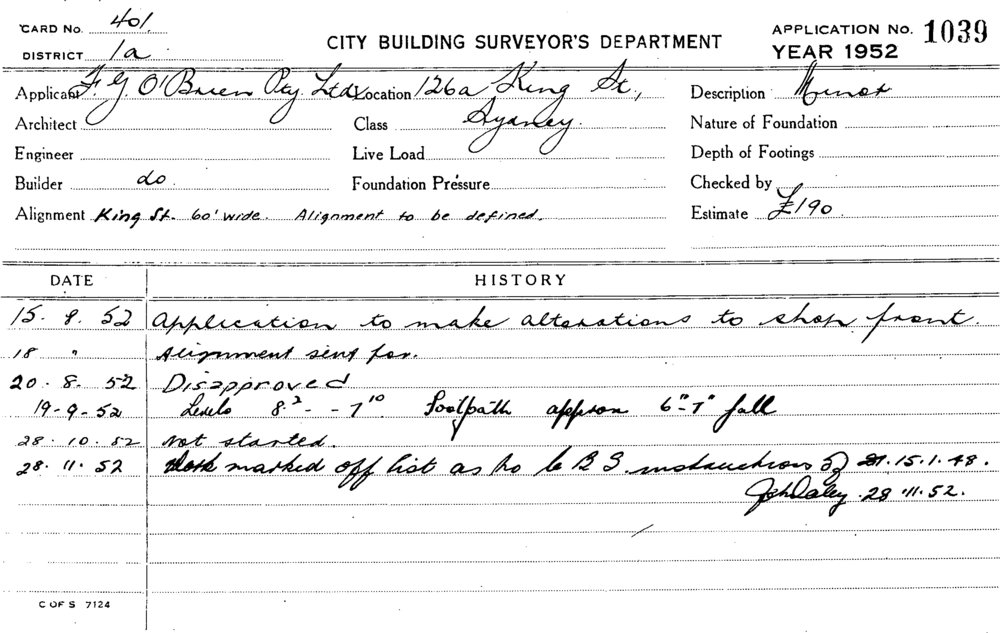 CARD No. 401.
DISTRICT 1a
CITY BUILDING SURVEYOR'S DEPARTMENT
APPLICATION No. 1039
YEAR 1952
Applicant F. G. O'Brien Pty. Ltd. Location 126a King St., Description Minor
Architect Class Sydney. Nature of Foundation
Engineer Live Load Depth of Footings
Builder do. Foundation Pressure Checked by
Alignment King St. 60' wide. Alignment to be defined. Estimate £190
DATE HISTORY
15. 8. 52 Application to make alterations to shop front.
18 " Alignment sent for.
20. 8. 52 Disapproved
19-9-52 Levels 8.2 - -7 10 Footpath approx 6"-7" fall
28. 10. 52 Not started.
28. 11. 52 marked off list as per C B S. instructions of 15.1.48.
28.11.52.
C OF S 7124